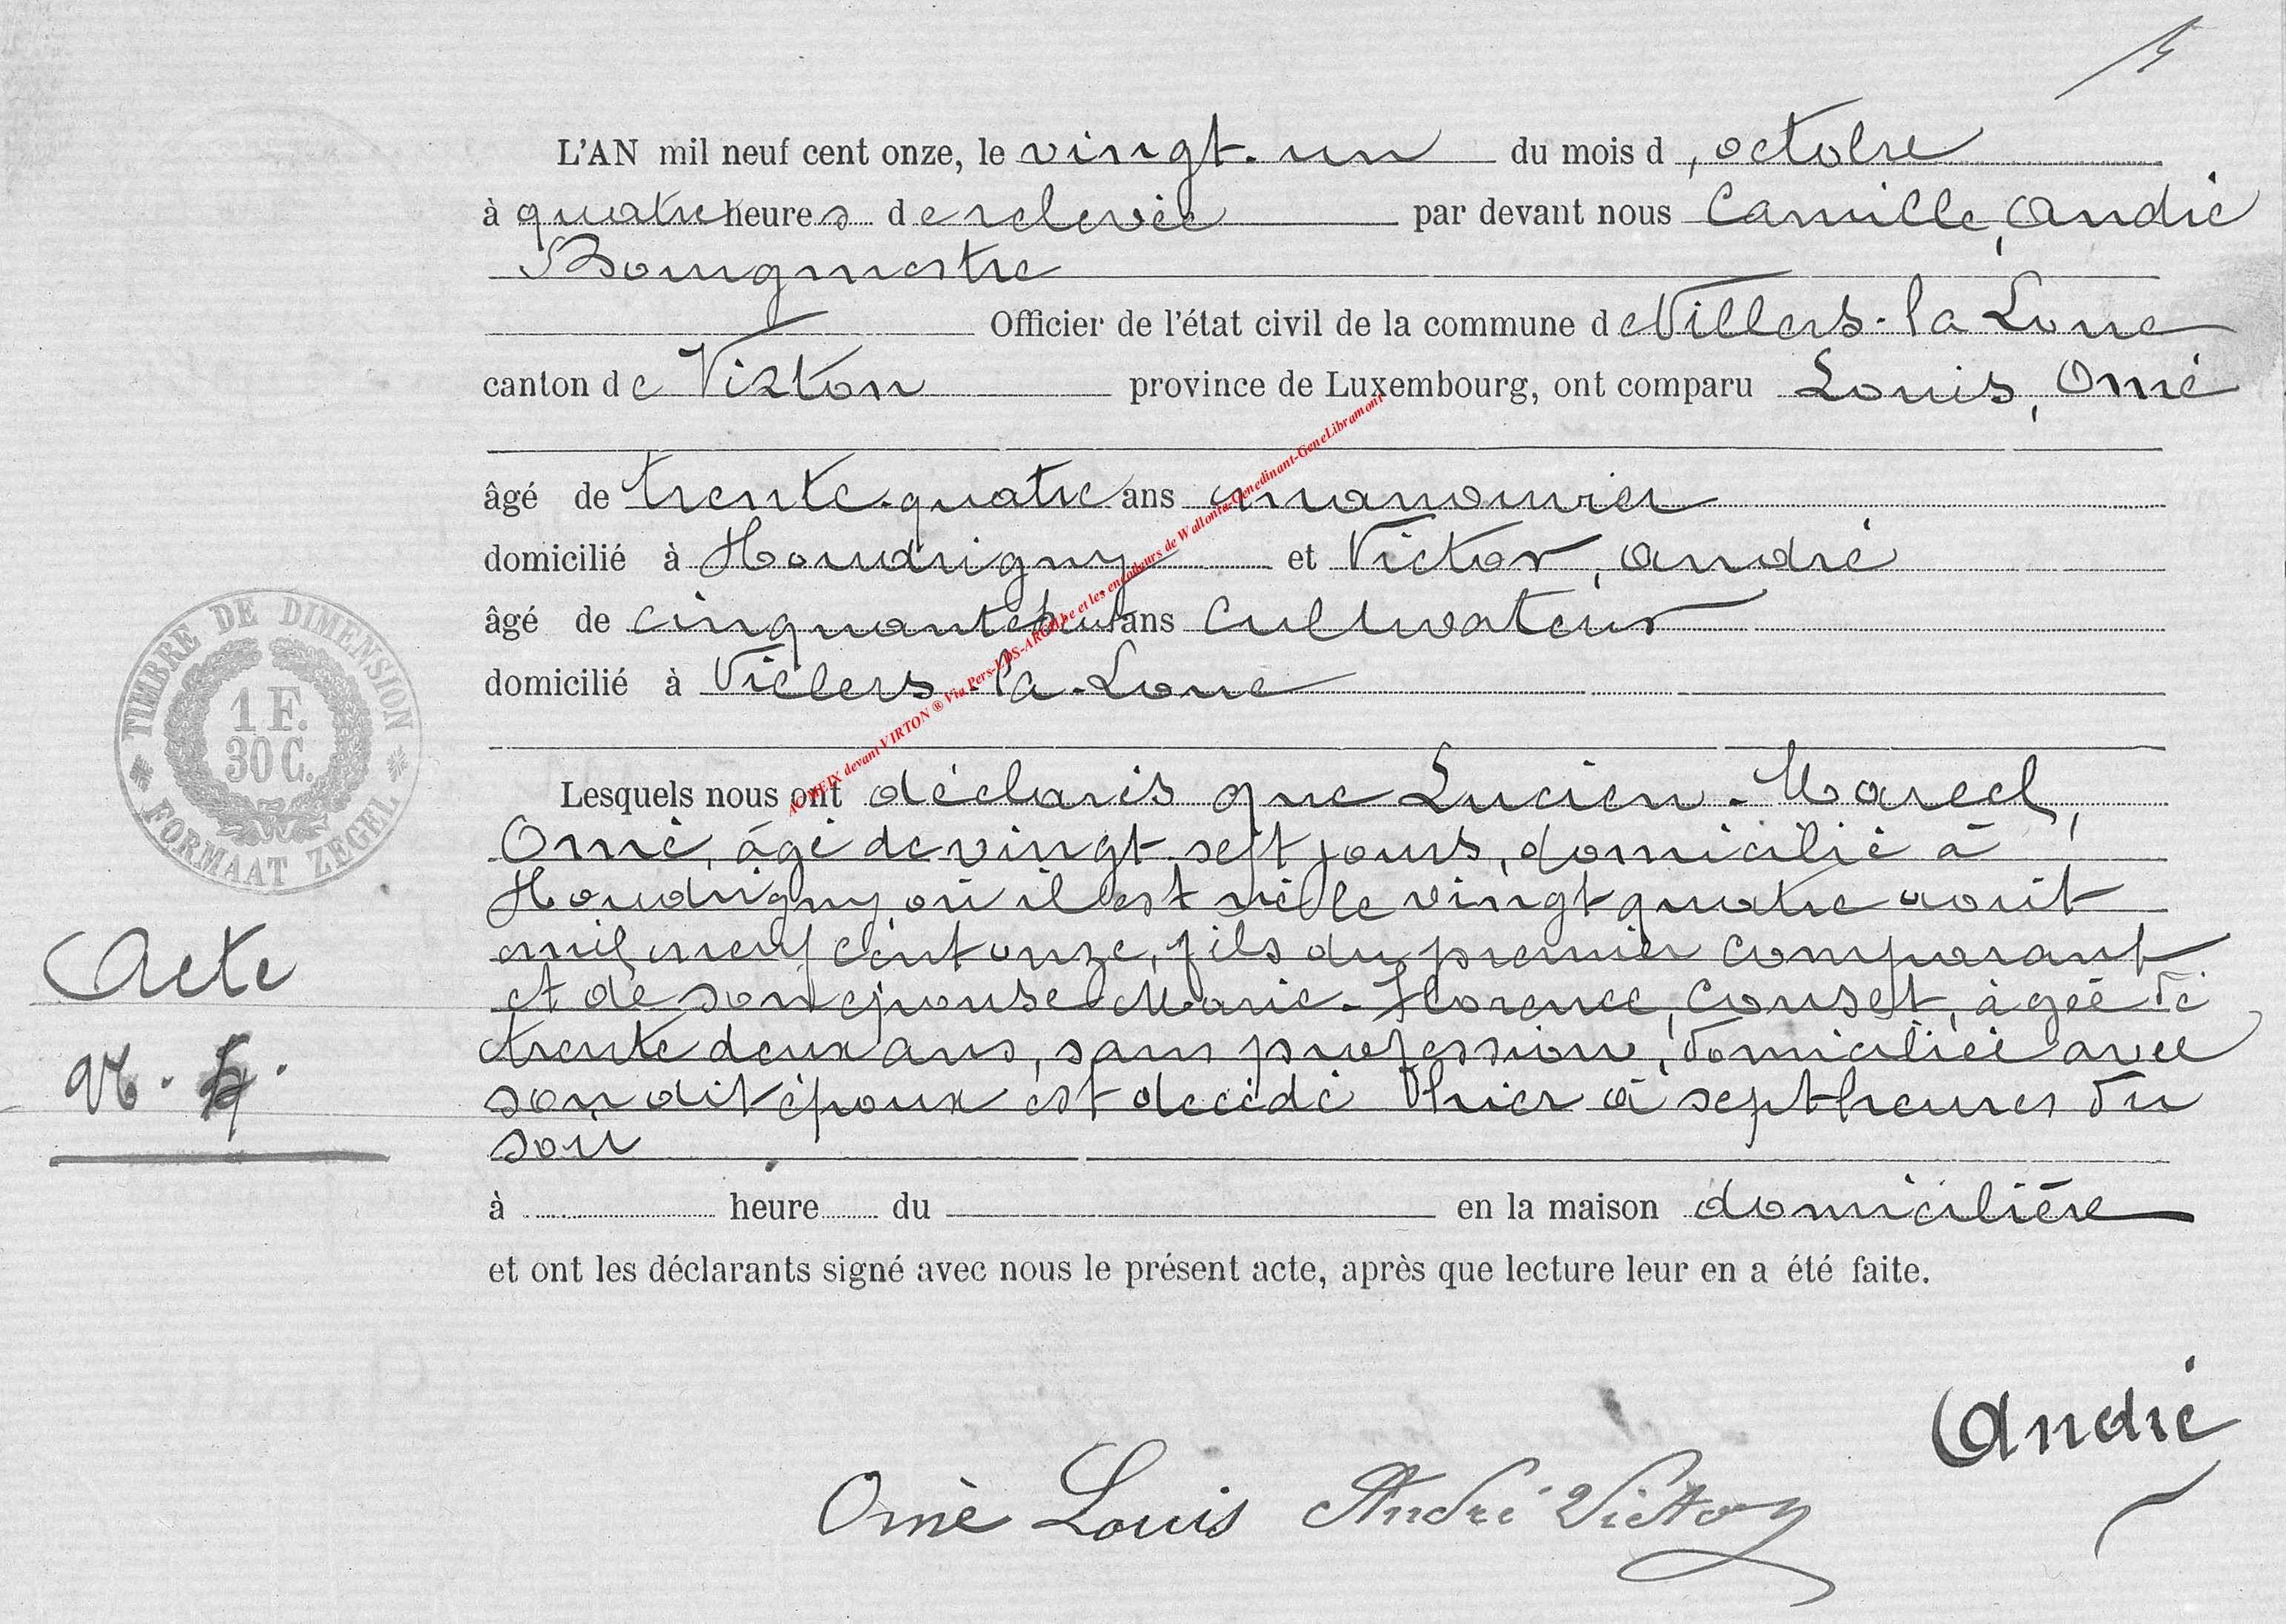 L'AN mil neuf cent onze, le vingt-un du mois d'octobre
à quatre heures de relevée par devant nous Camille, André
Bourgmestre
Officier de l'état civil de la commune de Villers-la Loue
canton de Virton province de Luxembourg, ont comparu Louis, Omé
âgé de trente-quatre ans manouvrier
domicilié à Houdrigny et Victor, André
âgé de cinquante huit ans cultivateur
domicilié à Villers-la-Loue
Lesquels nous ont déclarés que Lucien-Marcel,
Omé, âgé de vingt sept jours, domicilié à
Houdrigny où il est né le vingt quatre août
mil neuf cent onze, fils du premier comparant
et de son épouse Marie-Florence, Couset, âgée de
trente deux ans, sans profession, domiciliée avec
son dit époux est décédé hier à sept heures du
soir
à heure du en la maison domicilière
et ont les déclarants signé avec nous le présent acte, après que lecture leur en a été faite.
André
Omé Louis André Victor
Acte
TIMBRE DE DIMENSION
1 F.
30 C.
FORMAAT ZEGEL
AC MEIX devant VIRTON ® Via Pers-LDS-ARCH.be et les encodeurs de Wallonia-Genedinant-GeneLibramont